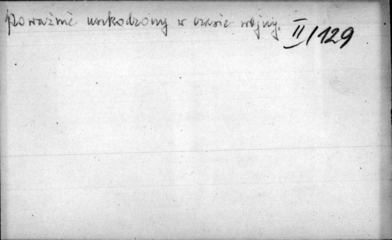 Poważnie uszkodzony w czasie wojny.
II/129